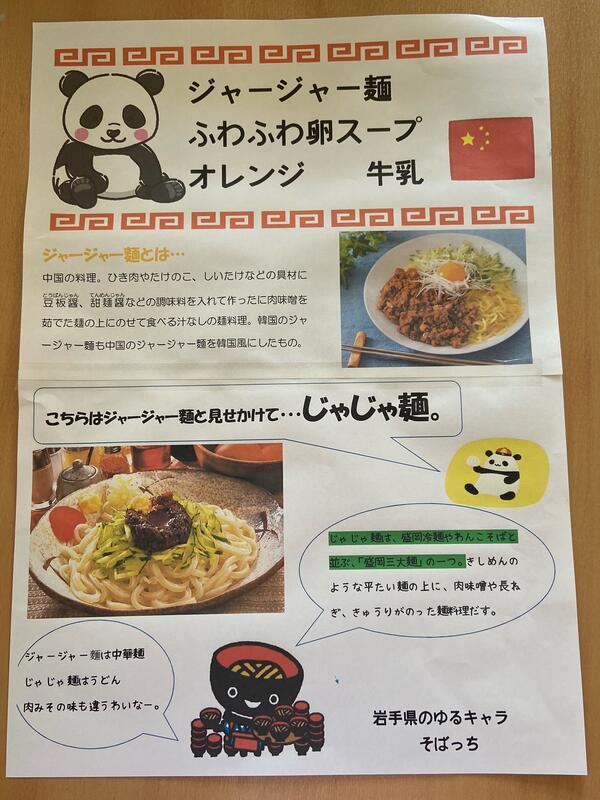 ジャージャー麺
ふわふわ卵スープ
オレンジ　　牛乳
ジャージャー麺とは…
中国の料理。ひき肉やたけのこ、しいたけなどの具材に
とうばんじゃん　てんめんじゃん
豆板醤、甜麺醤などの調味料を入れて作ったに肉味噌を
茹でた麺の上にのせて食べる汁なしの麺料理。韓国のジャ
ージャー麺も中国のジャージャー麺を韓国風にしたもの。
こちらはジャージャー麺と見せかけて…じゃじゃ麺。
じゃじゃ麺は、盛岡冷麺やわんこそばと
並ぶ、「盛岡三大麺」の一つ。きしめんの
ような平たい麺の上に、肉味噌や長ね
ぎ、きゅうりがのった麺料理だす。
ジャージャー麺は中華麺
じゃじゃ麺はうどん
肉みその味も違うわいなー。
岩手県のゆるキャラ
そばっち